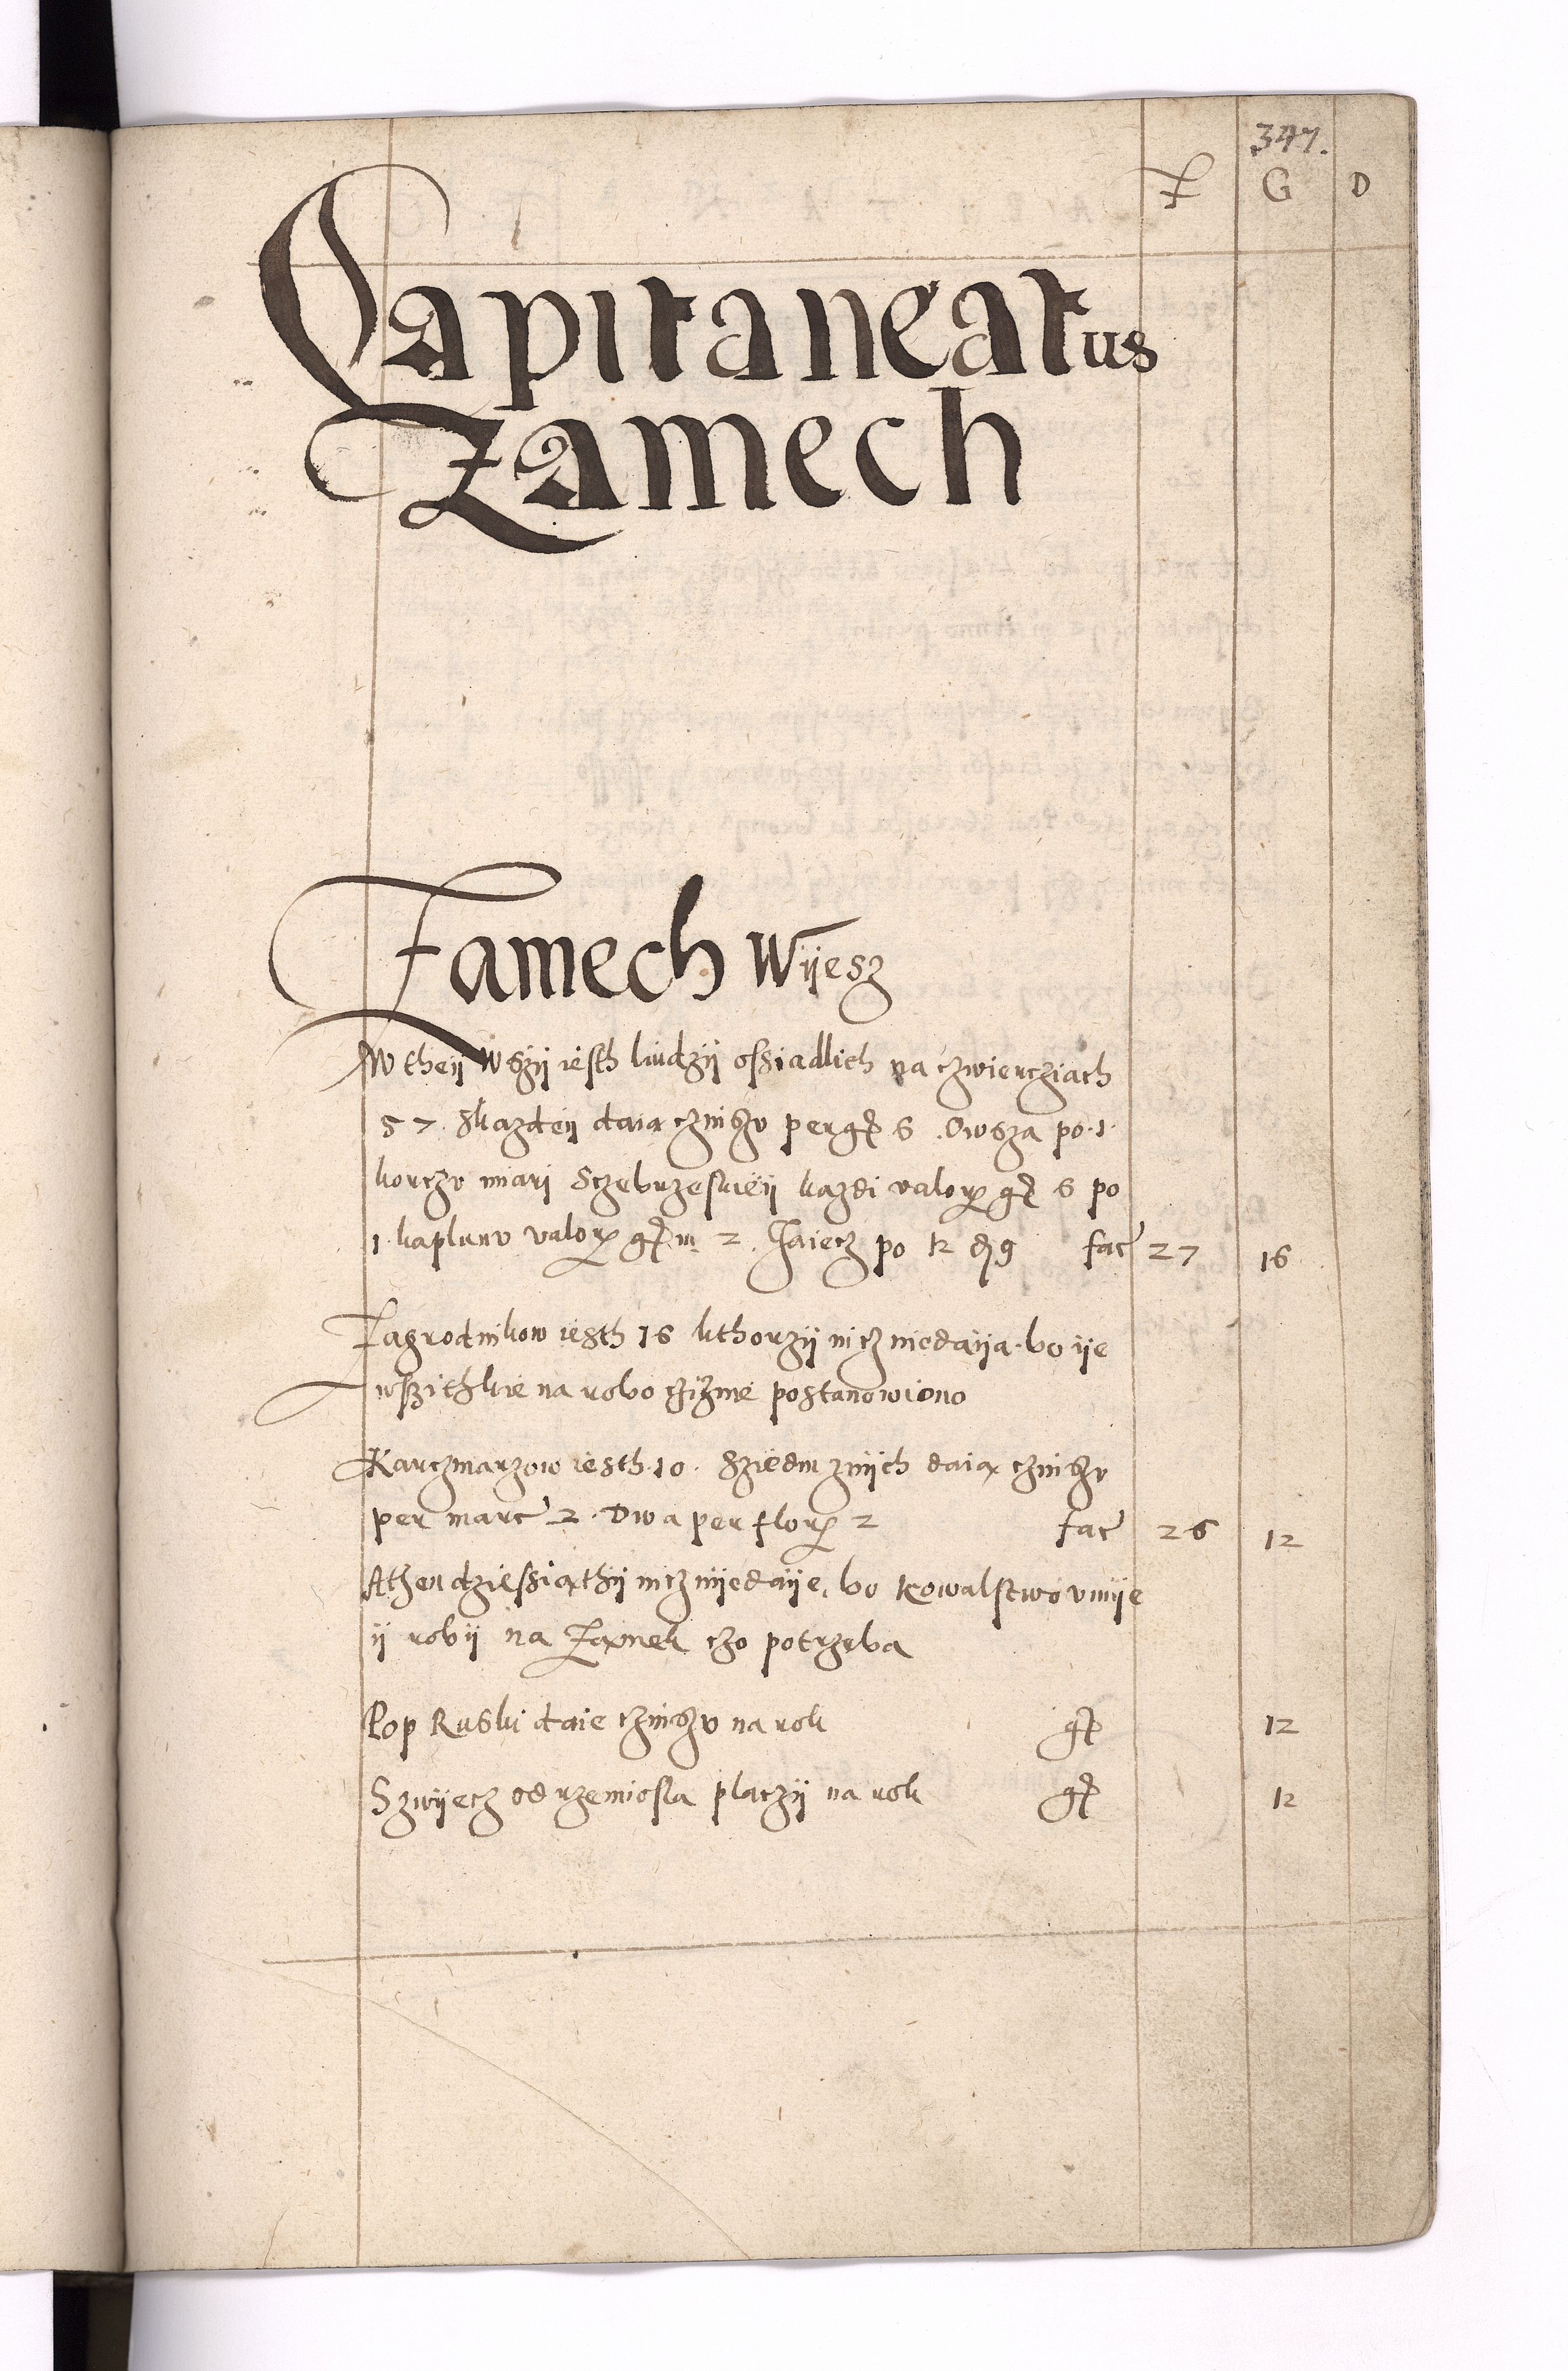 347.
F G D
Capitaneatus
Zamech
Zamech Wÿesz
W theÿ Wszÿ iesth liudzÿ ossiadlich na czwiercziach
57. Skazdeÿ daia czinszv per gr 6. Owsza po .1.
korczv miari Sczebrzeskieÿ kazdi valor gr 6 po
1. kaplunv valor gr m 2. Jaiecz po 12 d 9 fac 27 16
Zagrodnikow iesth 16 kthorzÿ nicz niedaÿa. bo ÿe
wszithkie na robocziznie postanowiono
Karczmarzow iesth .10. Sziedm znÿch daia czinszv
per marc 2. Dwa per flor 2 fac 26 12
A then dziessiąthÿ nicz nÿedaÿe, bo kowalstwo vmÿe
ÿ robÿ na Zamek czo potrzeba
Pop Ruski daie czinszv na rok gr 12
Szwÿecz od rzemiosla placzÿ na rok gr 12